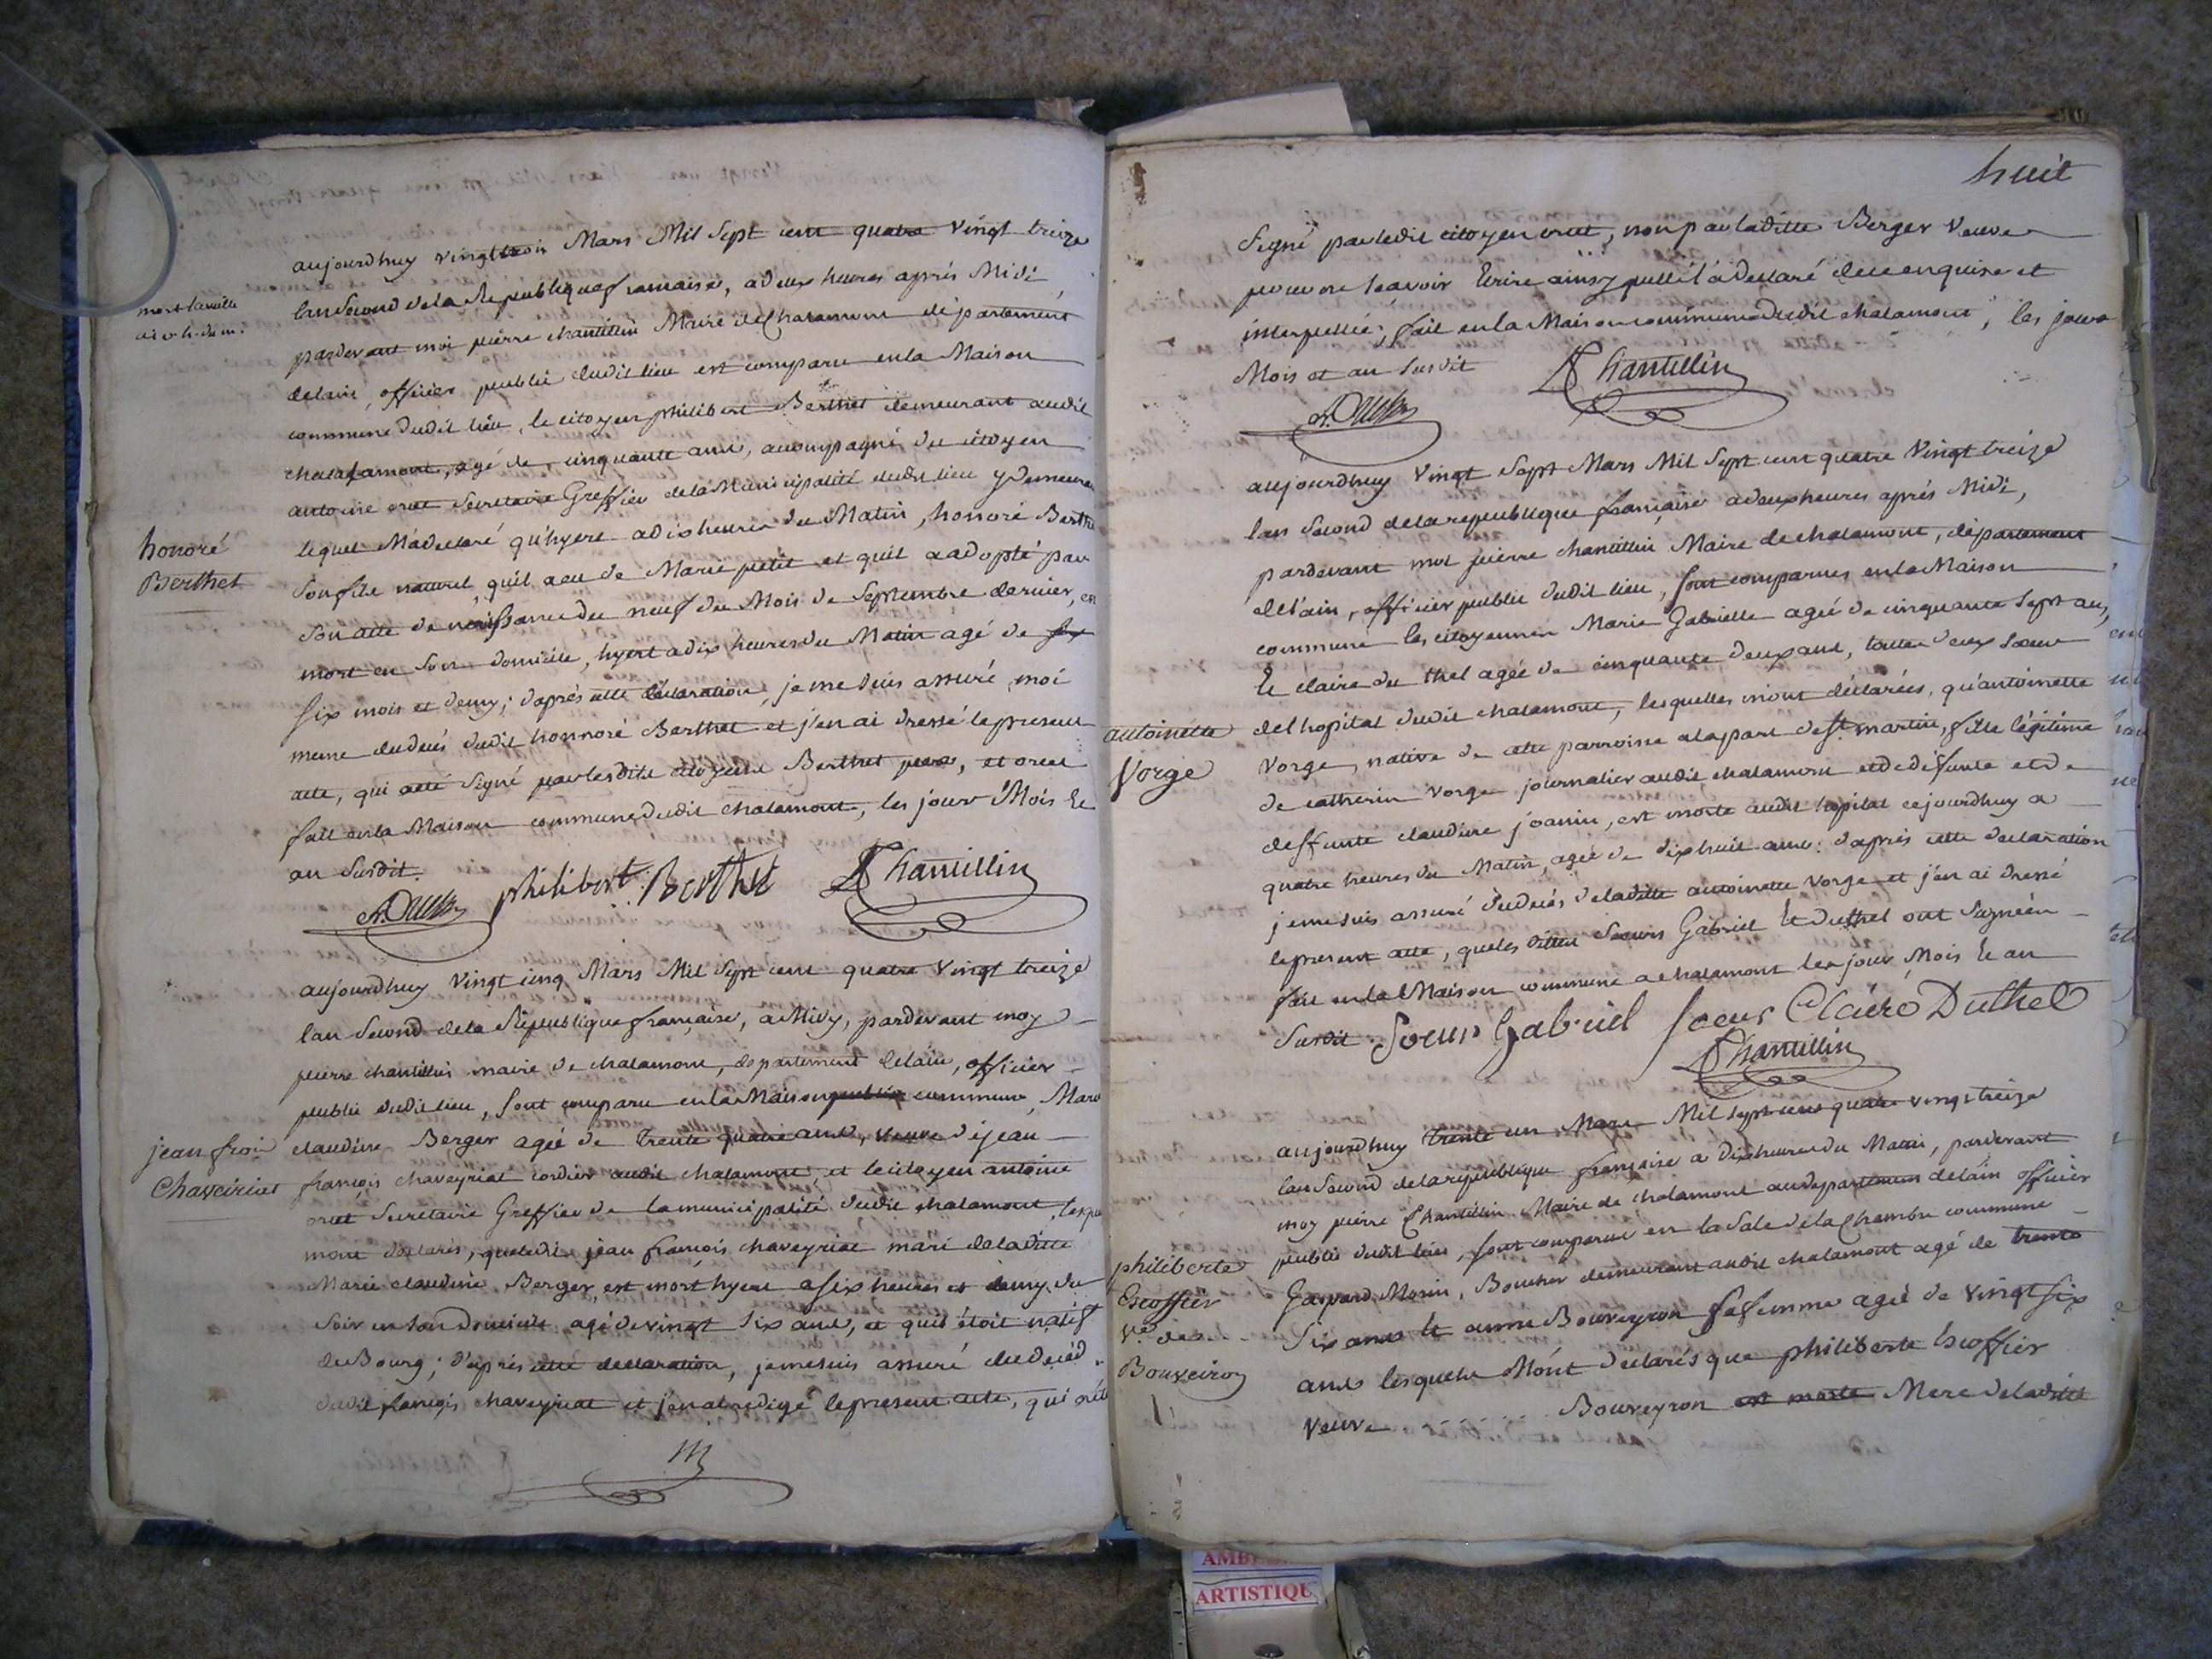 aujourdhuy vingt trois Mars Mil Sept cent quatre vingt treize
lan Second de la Republique francaise, a deux heures aprés Midi
mort la veille
a 10 h. du m.
pardevant moi pierre chantillin Maire de Chalamont département
delain, officier public dudit lieu est comparu en la Maison
commune dudit lieu, le citoyen philibert Berthet demeurant audit
chalamont, agé de cinquante ans, accompagné du citoyen
antoine Secretaire Greffier de la Municipalité dudit lieu y demeurant
honoré
Berthet
lequel M'a declaré qu'hyert a dix heures du Matin, honoré Berthet
Son fils naturel qu'il a eu de Marie petit et quil a adopté par
Son acte de naissance du neuf du Mois de Septembre dernier, est
mort en Son domicile, hyert a dix heures du Matin agé de
Six mois et demy; d'aprés cette déclaration, je me suis assuré moi
meme du decés dudit honnoré Berthet et j'en ai dressé le present
acte, qui a eté Signé par lesdits citoyens Berthet pere, et
fait en la Maison commune dudit chalamont, les jour Mois et
an Susdit.
philibert Berthet Chantillin
aujourdhuy Vingt cinq Mars Mil Sept cent quatre Vingt treize
lan Second de la Republique française, a Midy, pardevant moy
pierre chantillin maire de chalamont, departement delain, officier
public dudit lieu, Sont comparu en la Maison publique commune, Marie
jean froi
Chaveiriat
claudine Berger agée de trente quatre ans, veuve de jean
françois chaveyriat cordier audit chalamont, et le citoyen antoine
Secretaire Greffier de la municipalité dudit chalamont, lesquels
mont declarés, queledit jean françois chaveyriat mari deladitte
Marie claudine Berger, est mort hyere a Six heures et demy du
Soir en Son Domicile agé de vingt Six ans, et quil étoit natif
de Bourg; d'aprés cette declaration, je me suis assuré du decéd
dudit françois chaveyriat et j'en ai redigé le present acte, qui a eté
huit
Signé par ledit citoyen, non par laditte Berger Veuve
pour ne Scavoir Ecrire ainsy quelle l'a declaré de ce enquise et
interpellée; fait en la Maison commune dudit chalamont, les jour
Mois et an Susdit Chantillin
aujourdhuy Vingt Sept Mars Mil Sept cent quatre Vingt treize
lan Second de la republique française a deux heures aprés Midi,
pardevant moi pierre chantillin Maire de chalamont, département
del'ain, officier public dudit lieu, Sont comparues en la Maison
commune les citoyennes Marie Gabrielle agée de cinquante Sept ans,
Et claire du thel agée de cinquante deux ans, toutes deux Soeur
antoinette
Vorge
del hopital dudit chalamont, lesquelles m'ont déclarées, qu'antoinette
Vorge, native de cette parroisse a la part de St martin, fille légitime
de catherin Vorge journalier audit chalamont et de defunte et de
deffunte claudine joanin, est morte audit hopital cejourdhuy a
quatre heures du Matin, agée de dix huit ans: d'aprés cette declaration
je me suis assuré du decés deladitte antoinette Vorge et j'en ai dressé
le present acte, que les dittes Soeurs Gabriel Et Duthel ont Signéén
fait en la Maison commune a chalamont les jour Mois Et an
Susdit Soeur Gabriel Soeur Claire Duthel
Chantillin
aujourdhuy trente un Mars Mil Sept cent quatre vingt treize
lan Second de la republique française a Dix heures du Matin, pardevant
moy pierre Chantillin Maire de chalamont au departement delain officier
public dudit lieu, Sont comparus en la Sale de la Chambre commune
philiberte
Escoffier
Ve de
Bouveiron
Gaspard Morin, Boucher demeurant audit chalamont agé de trente
Six ans Et anne Bouveyron Sa femme agée de Vingt Six
ans lesquels M'ont declarés que philiberte Escoffier
Veuve . . . . . . . Bouveyron est morte Mere deladitte
AMB
ARTISTIQU